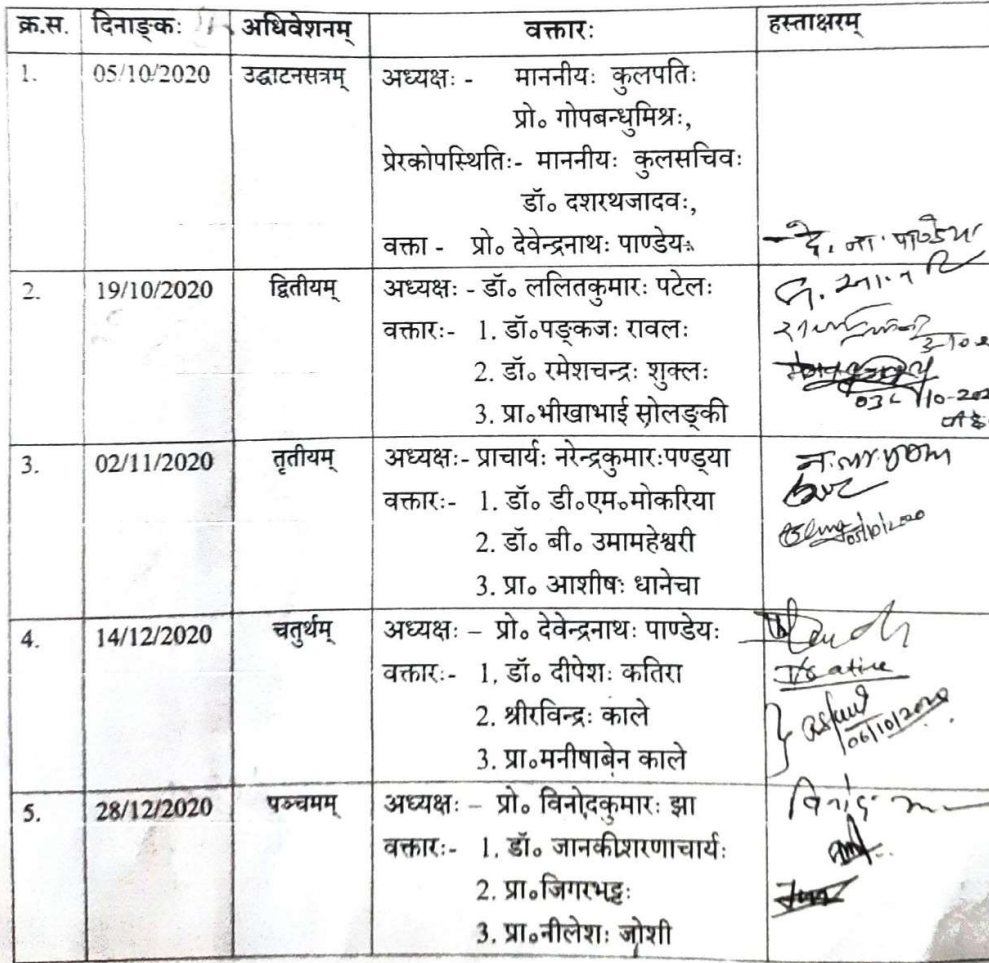 क्र.स. दिनाङ्कः अधिवेशनम् वक्तारः हस्ताक्षरम्
1. 05/10/2020 उद्घाटनसत्रम् अध्यक्षः - माननीयः कुलपतिः
प्रो० गोपबन्धुमिश्रः,
प्रेरकोपस्थितिः- माननीयः कुलसचिवः
डॉ० दशरथजादवः,
वक्ता - प्रो० देवेन्द्रनाथः पाण्डेयः दे. ना. पाण्डेयः
2. 19/10/2020 द्वितीयम् अध्यक्षः - डॉ० ललितकुमारः पटेलः
वक्तारः- 1. डॉ०पङ्कजः रावलः
2. डॉ० रमेशचन्द्रः शुक्लः
3. प्रा०भीखाभाई सोलङ्की
3. 02/11/2020 तृतीयम् अध्यक्षः- प्राचार्यः नरेन्द्रकुमारःपण्ड्या
वक्तारः- 1. डॉ० डी०एम०मोकरिया
2. डॉ० बी० उमामहेश्वरी 05/10/2020
3. प्रा० आशीषः धानेचा
4. 14/12/2020 चतुर्थम् अध्यक्षः – प्रो० देवेन्द्रनाथः पाण्डेयः
वक्तारः- 1. डॉ० दीपेशः कतिरा
2. श्रीरविन्द्रः काले 06/10/2020
3. प्रा०मनीषाबेन काले
5. 28/12/2020 पञ्चमम् अध्यक्षः – प्रो० विनोदकुमारः झा
वक्तारः- 1. डॉ० जानकीशरणाचार्यः
2. प्रा०जिगरभट्टः
3. प्रा०नीलेशः जोशी